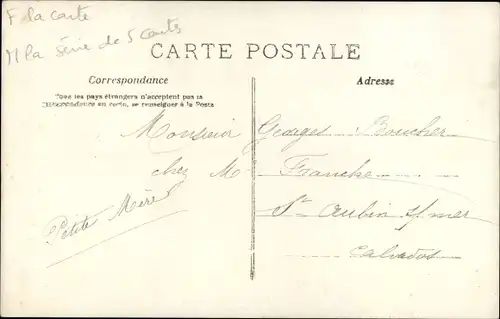 F la carte
M la série de 5 cartes
CARTE POSTALE
Correspondance
Adresse
Tous les pays étrangers n'acceptent pas la
correspondance au verso, se renseigner à la Poste
Monsieur Georges Boucher
chez M Franche
St Aubin s/mer
Calvados
Petite Mère